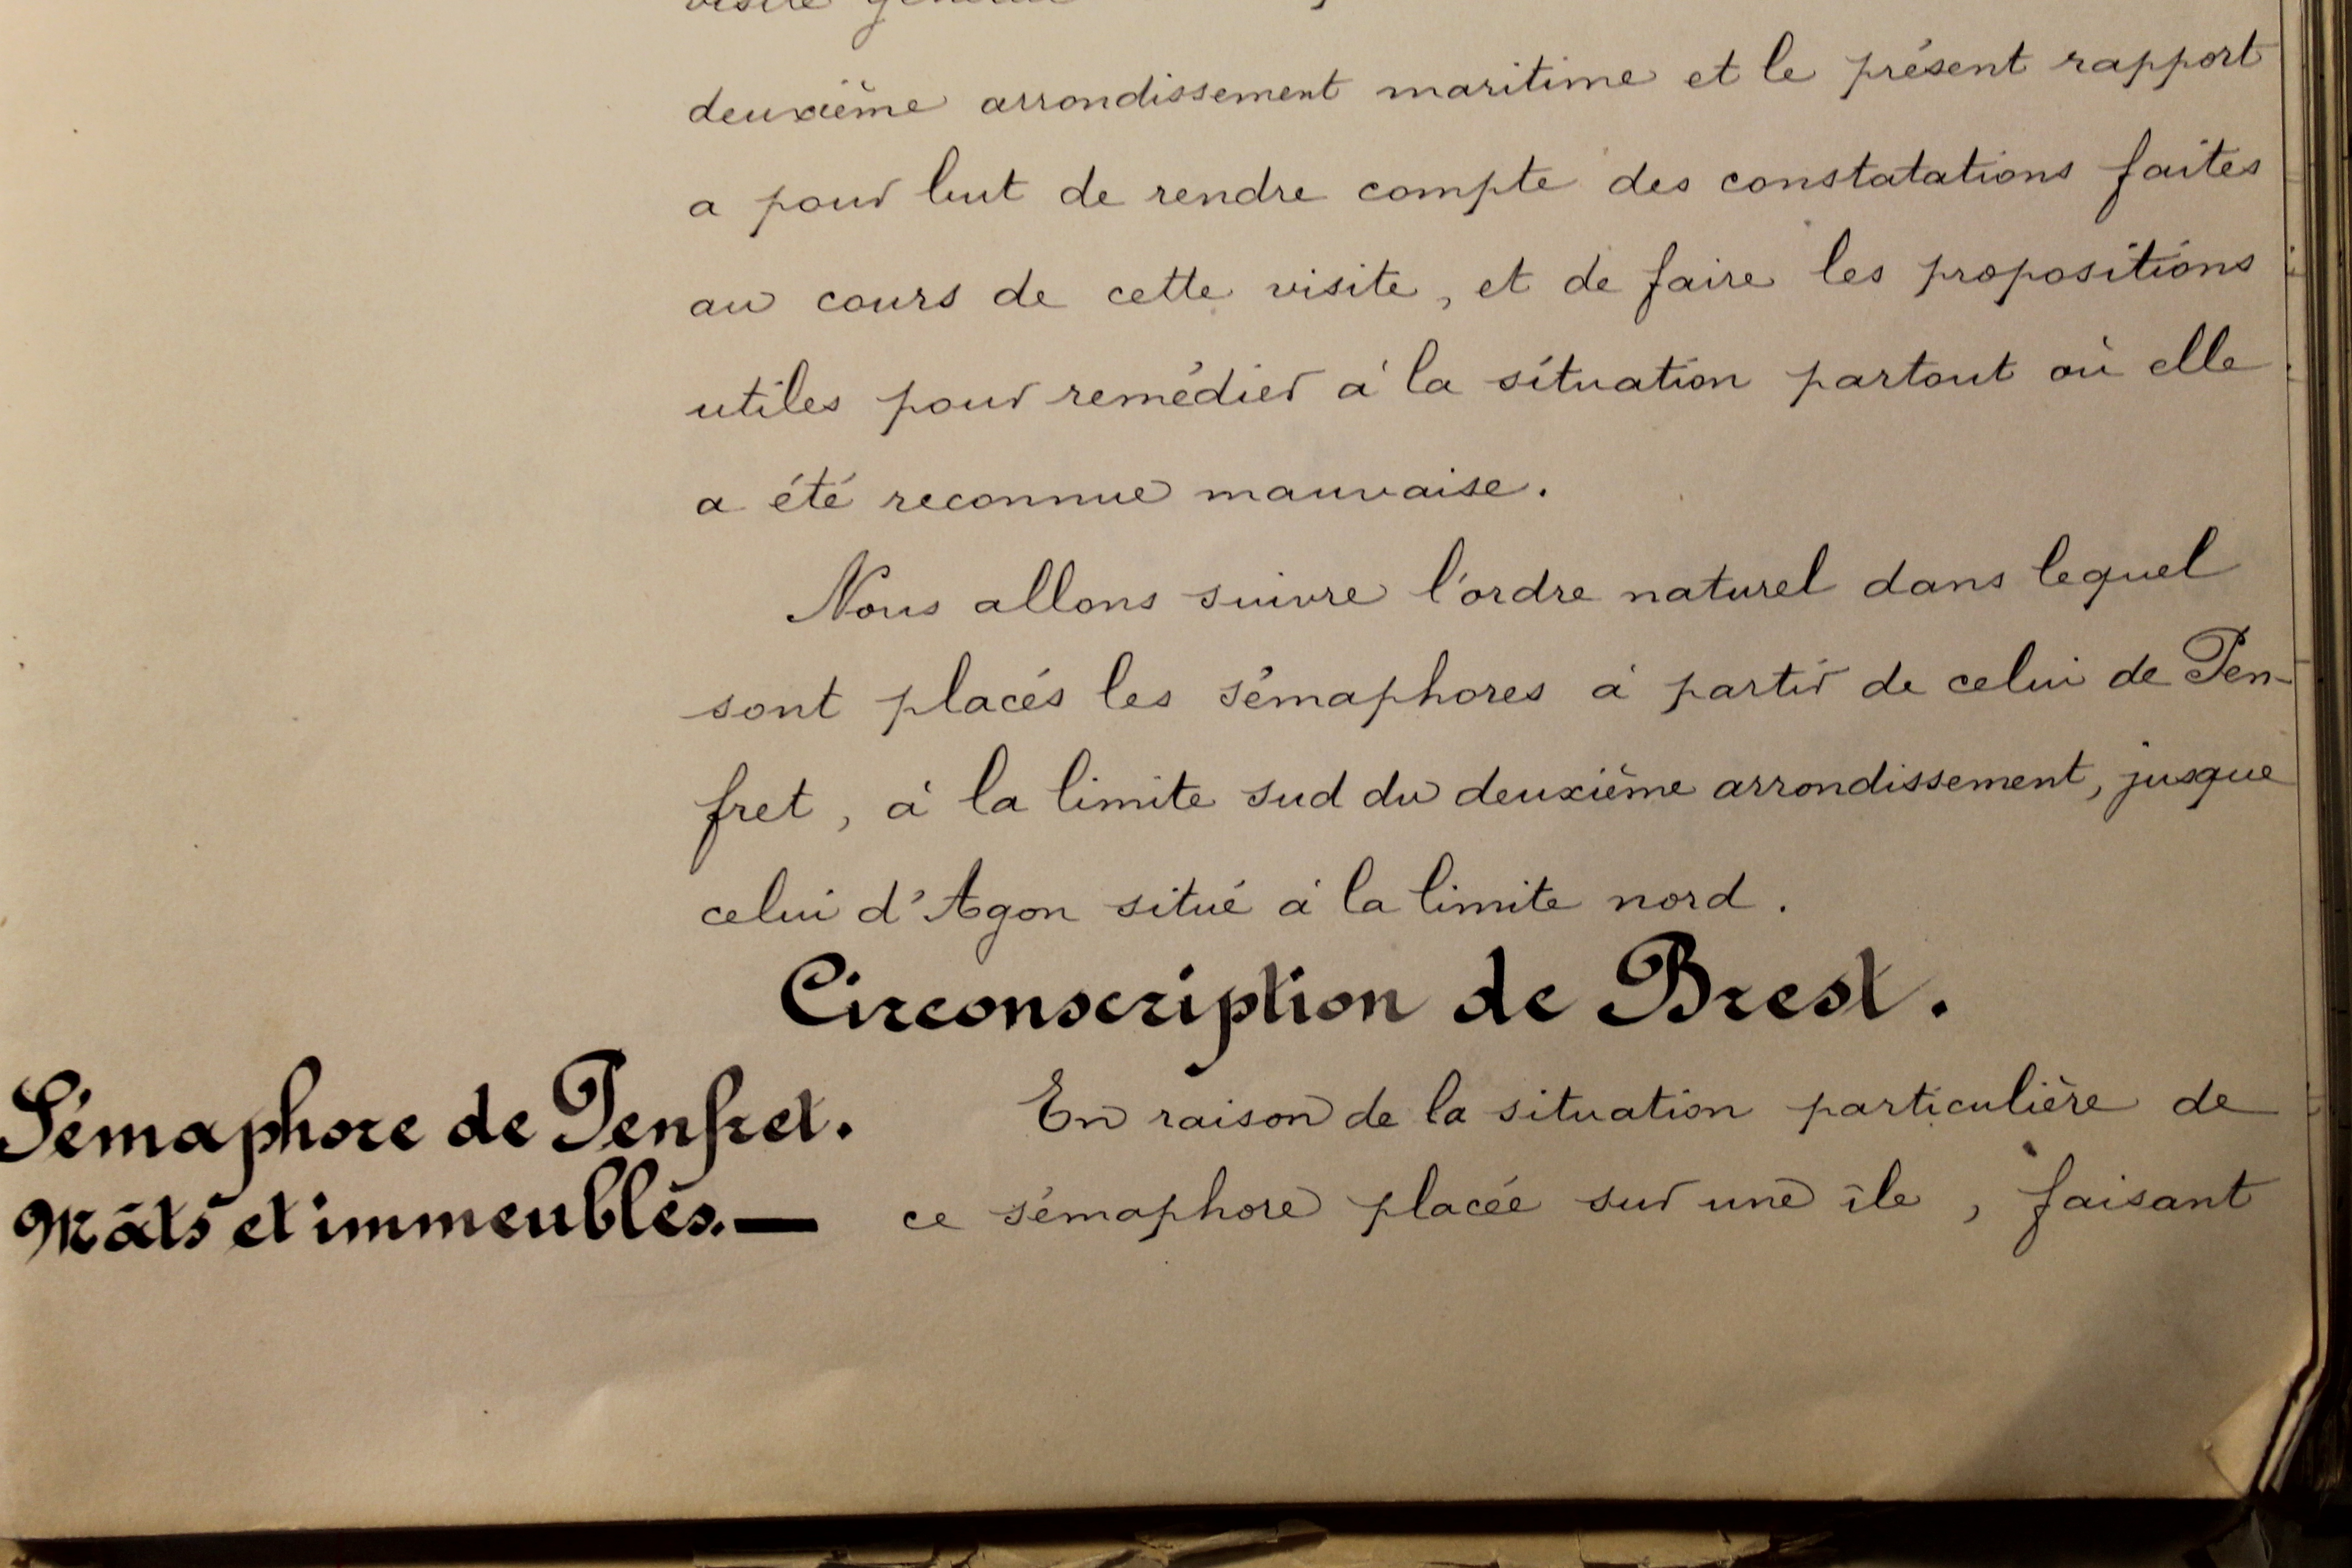 visite
deuxième arrondissement maritime et le présent rapport
a pour but de rendre compte des constatations faites
au cours de cette visite, et de faire les propositions
utiles pour remédier à la situation partout où elle
a été reconnue mauvaise.
Nous allons suivre l'ordre naturel dans lequel
sont placés les sémaphores à partir de celui de Pen-
fret, à la limite sud du deuxième arrondissement, jusque
celui d'Agon situé à la limite nord.
Circonscription de Brest.
Sémaphore de Penfret.
Mâts et immeubles.—
En raison de la situation particulière de
ce sémaphore placée sur une île, faisant